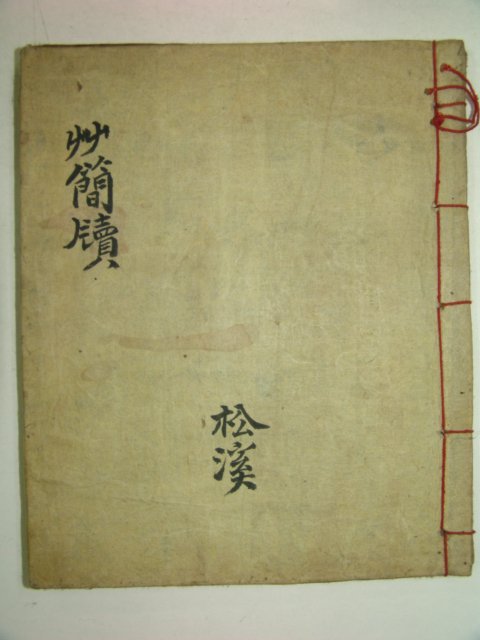 艸簡牘
松溪